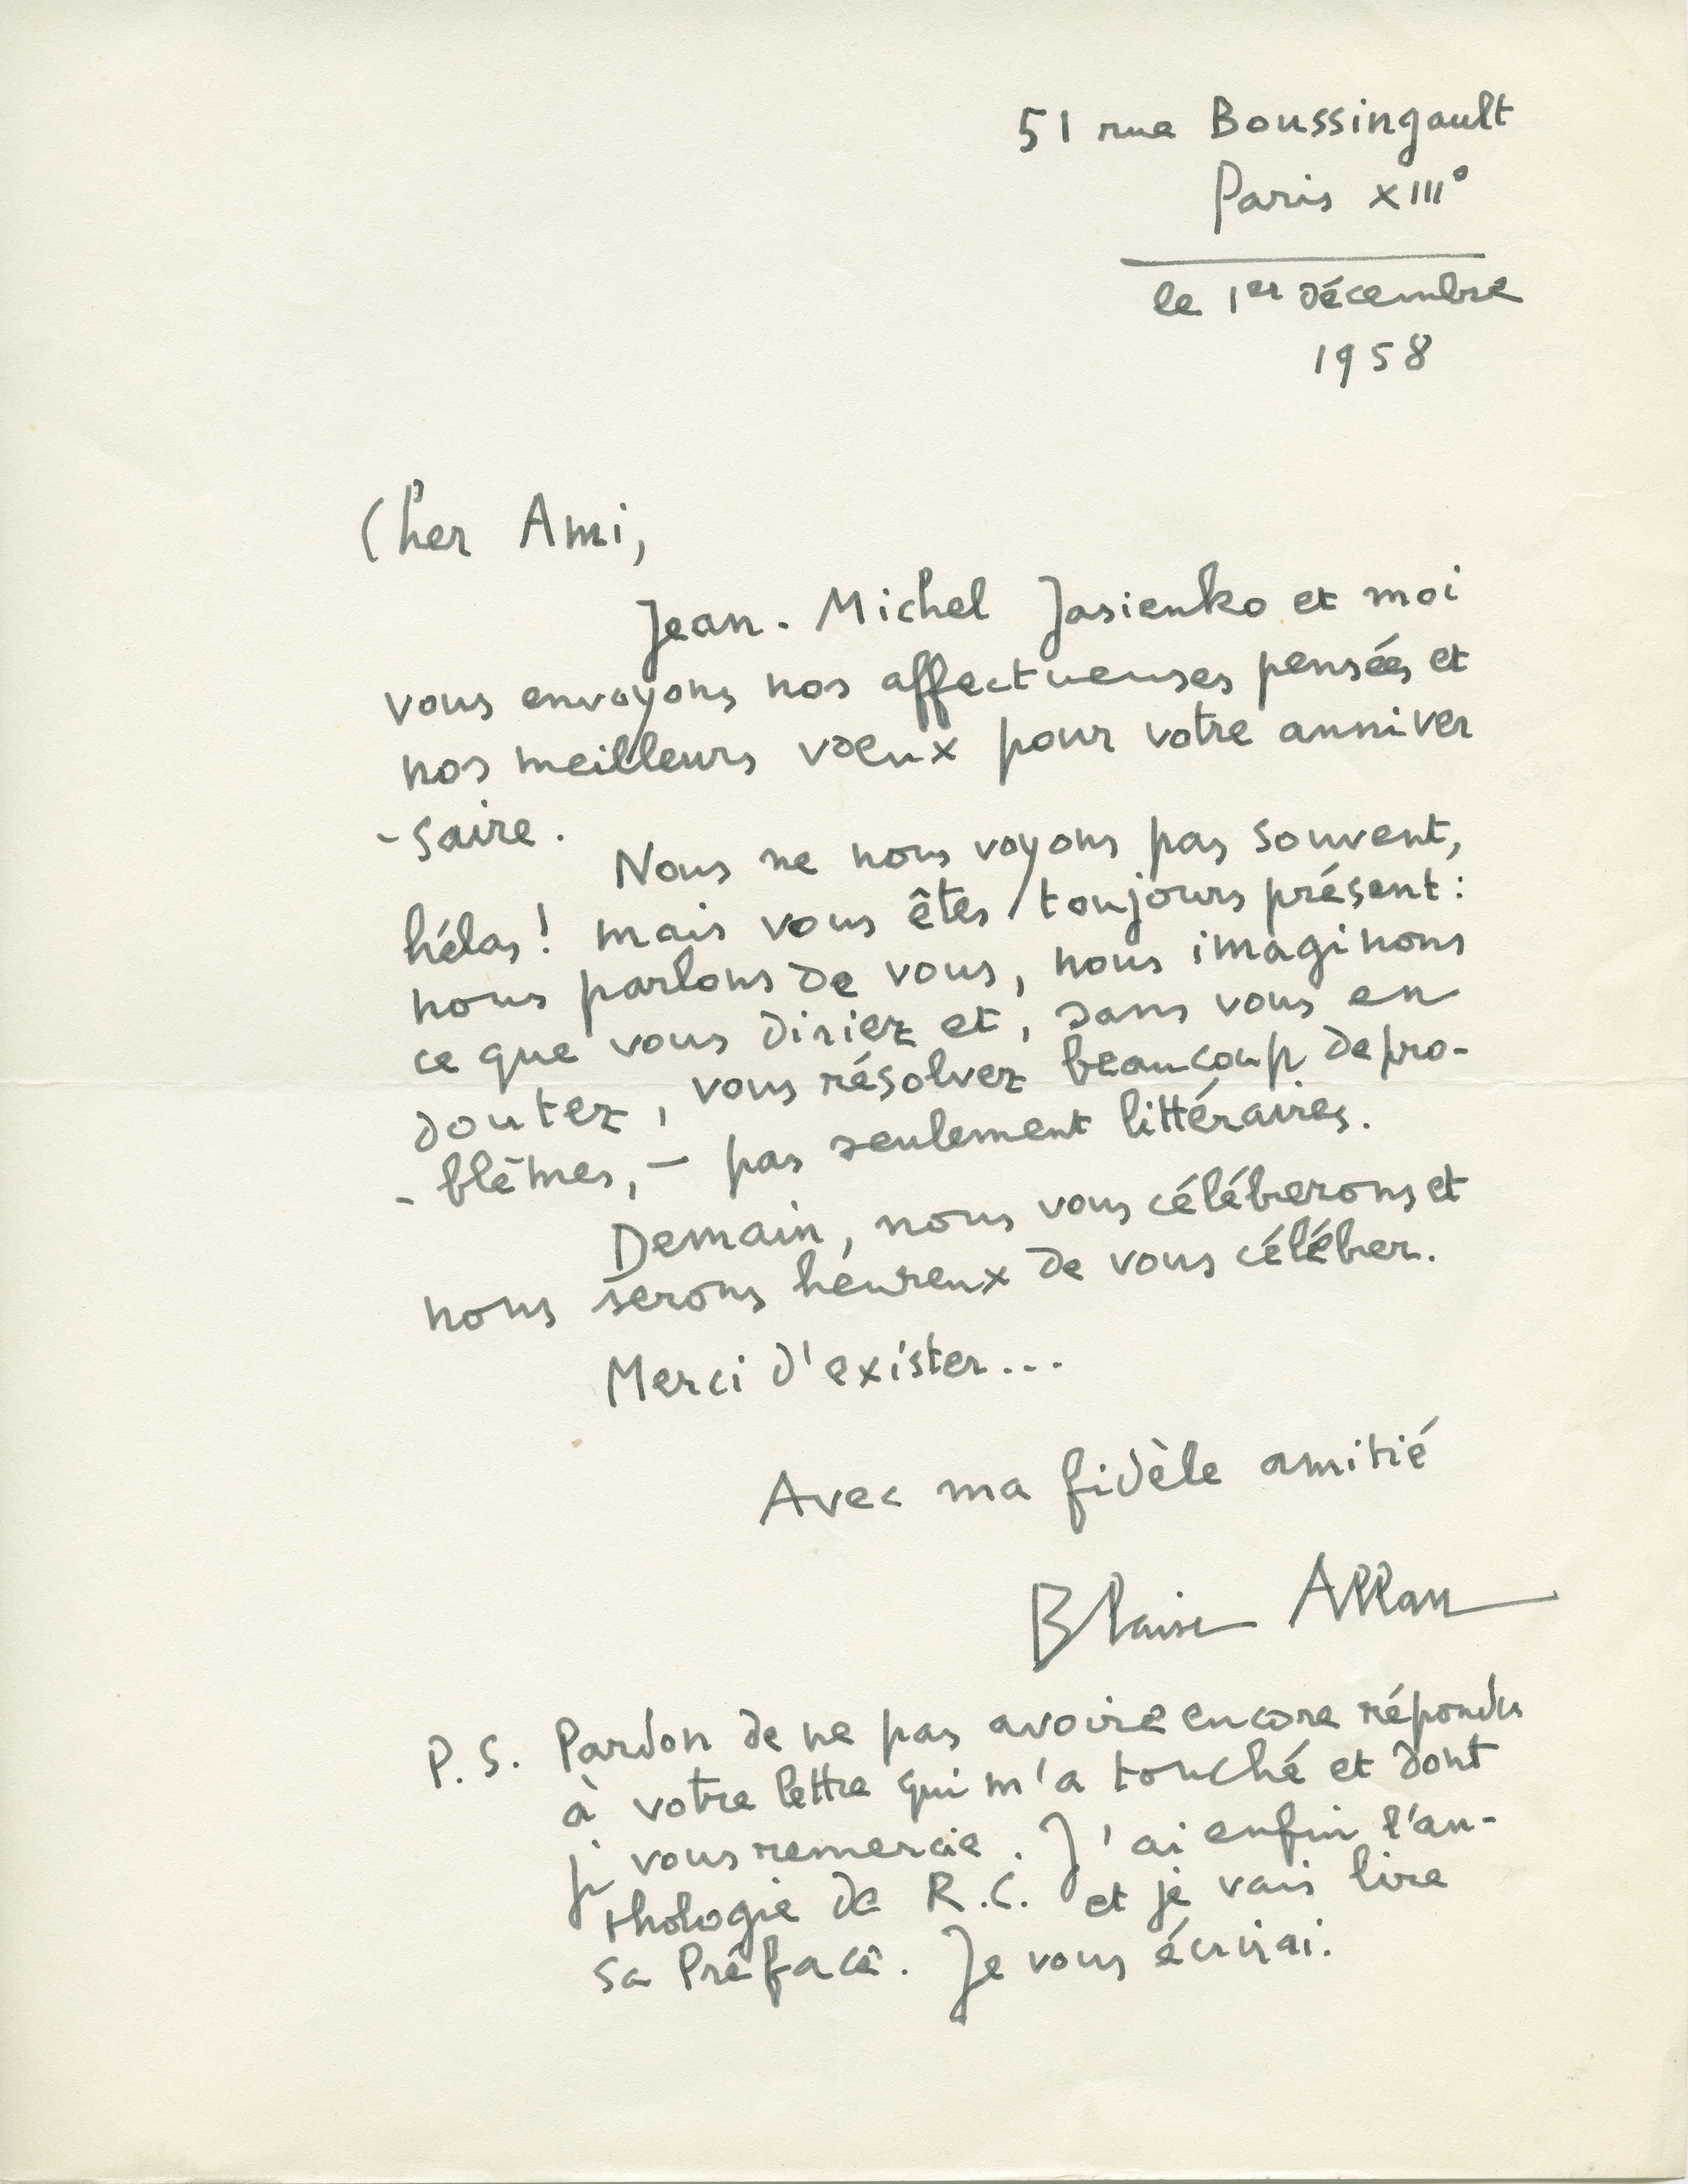 51 rue Boussingault
Paris XIII°
le 1er décembre
1958
Cher Ami,
Jean-Michel Jasienko et moi
vous envoyons nos affectueuses pensées et
nos meilleurs vœux pour votre anniver
-saire.
Nous ne nous voyons pas souvent,
hélas! mais vous êtes toujours présent:
nous parlons de vous, nous imaginons
ce que vous diriez et, sans vous en
doutez, vous résolvez beaucoup de pro-
-blèmes, — pas seulement littéraires.
Demain, nous vous célébrerons et
nous serons heureux de vous célébrer.
Merci d'exister...
Avec ma fidèle amitié
Blaise Allan
P.S. Pardon de ne pas avoir encore répondu
à votre lettre qui m'a touché et dont
je vous remercie. J'ai enfin l'an-
thologie de R.C. et je vais lire
sa Préface. Je vous écrirai.